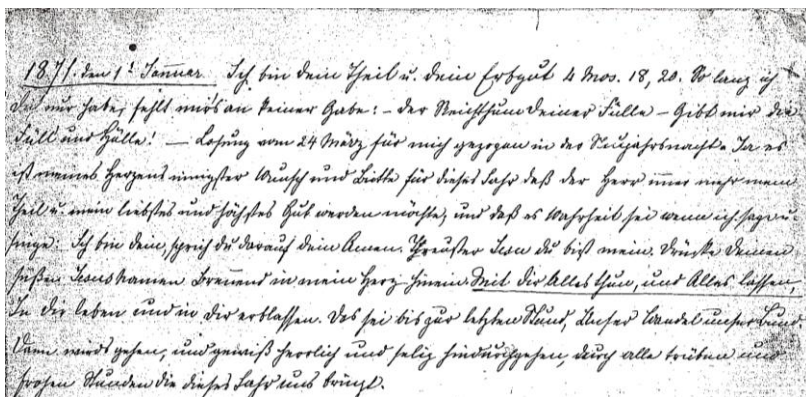 1871. den 1t Januar. Ich bin dein Theil u. dein Erbgut 4 Mos. 18, 20. So lang ich
Dich nur habe, fehlt mirs an keiner Gabe: – Der Reichthum Deiner Fülle – Gibt mir die
Füll und Hülle! — Losung vom 24 März für mich gezogen in der Neujahrsnacht. Ja es
ist meines Herzens innigster Wunsch und Bitte für dieses Jahr daß der Herr imer mehr mein
Theil u. mein liebstes und höchstes Gut werden möchte, und daß es Wahrheit sei wenn ich sage u.
singe: Ich bin dein, sprich du darauf dein Amen. Treuster Jesu du bist mein. Drücke Deinen
süßen Jesus Namen Brennend in mein Herz hinein. Mit dir Alles thun, und Alles lassen,
In dir leben und in dir erblassen. Das sei bis zur letzten Stund, Unser Wandel unser Bund
Dann wirds gehen, und gewiß herrlich und selig hindurchgehen, durch alle trüben und
frohen Stunden die dieses Jahr uns bringt.